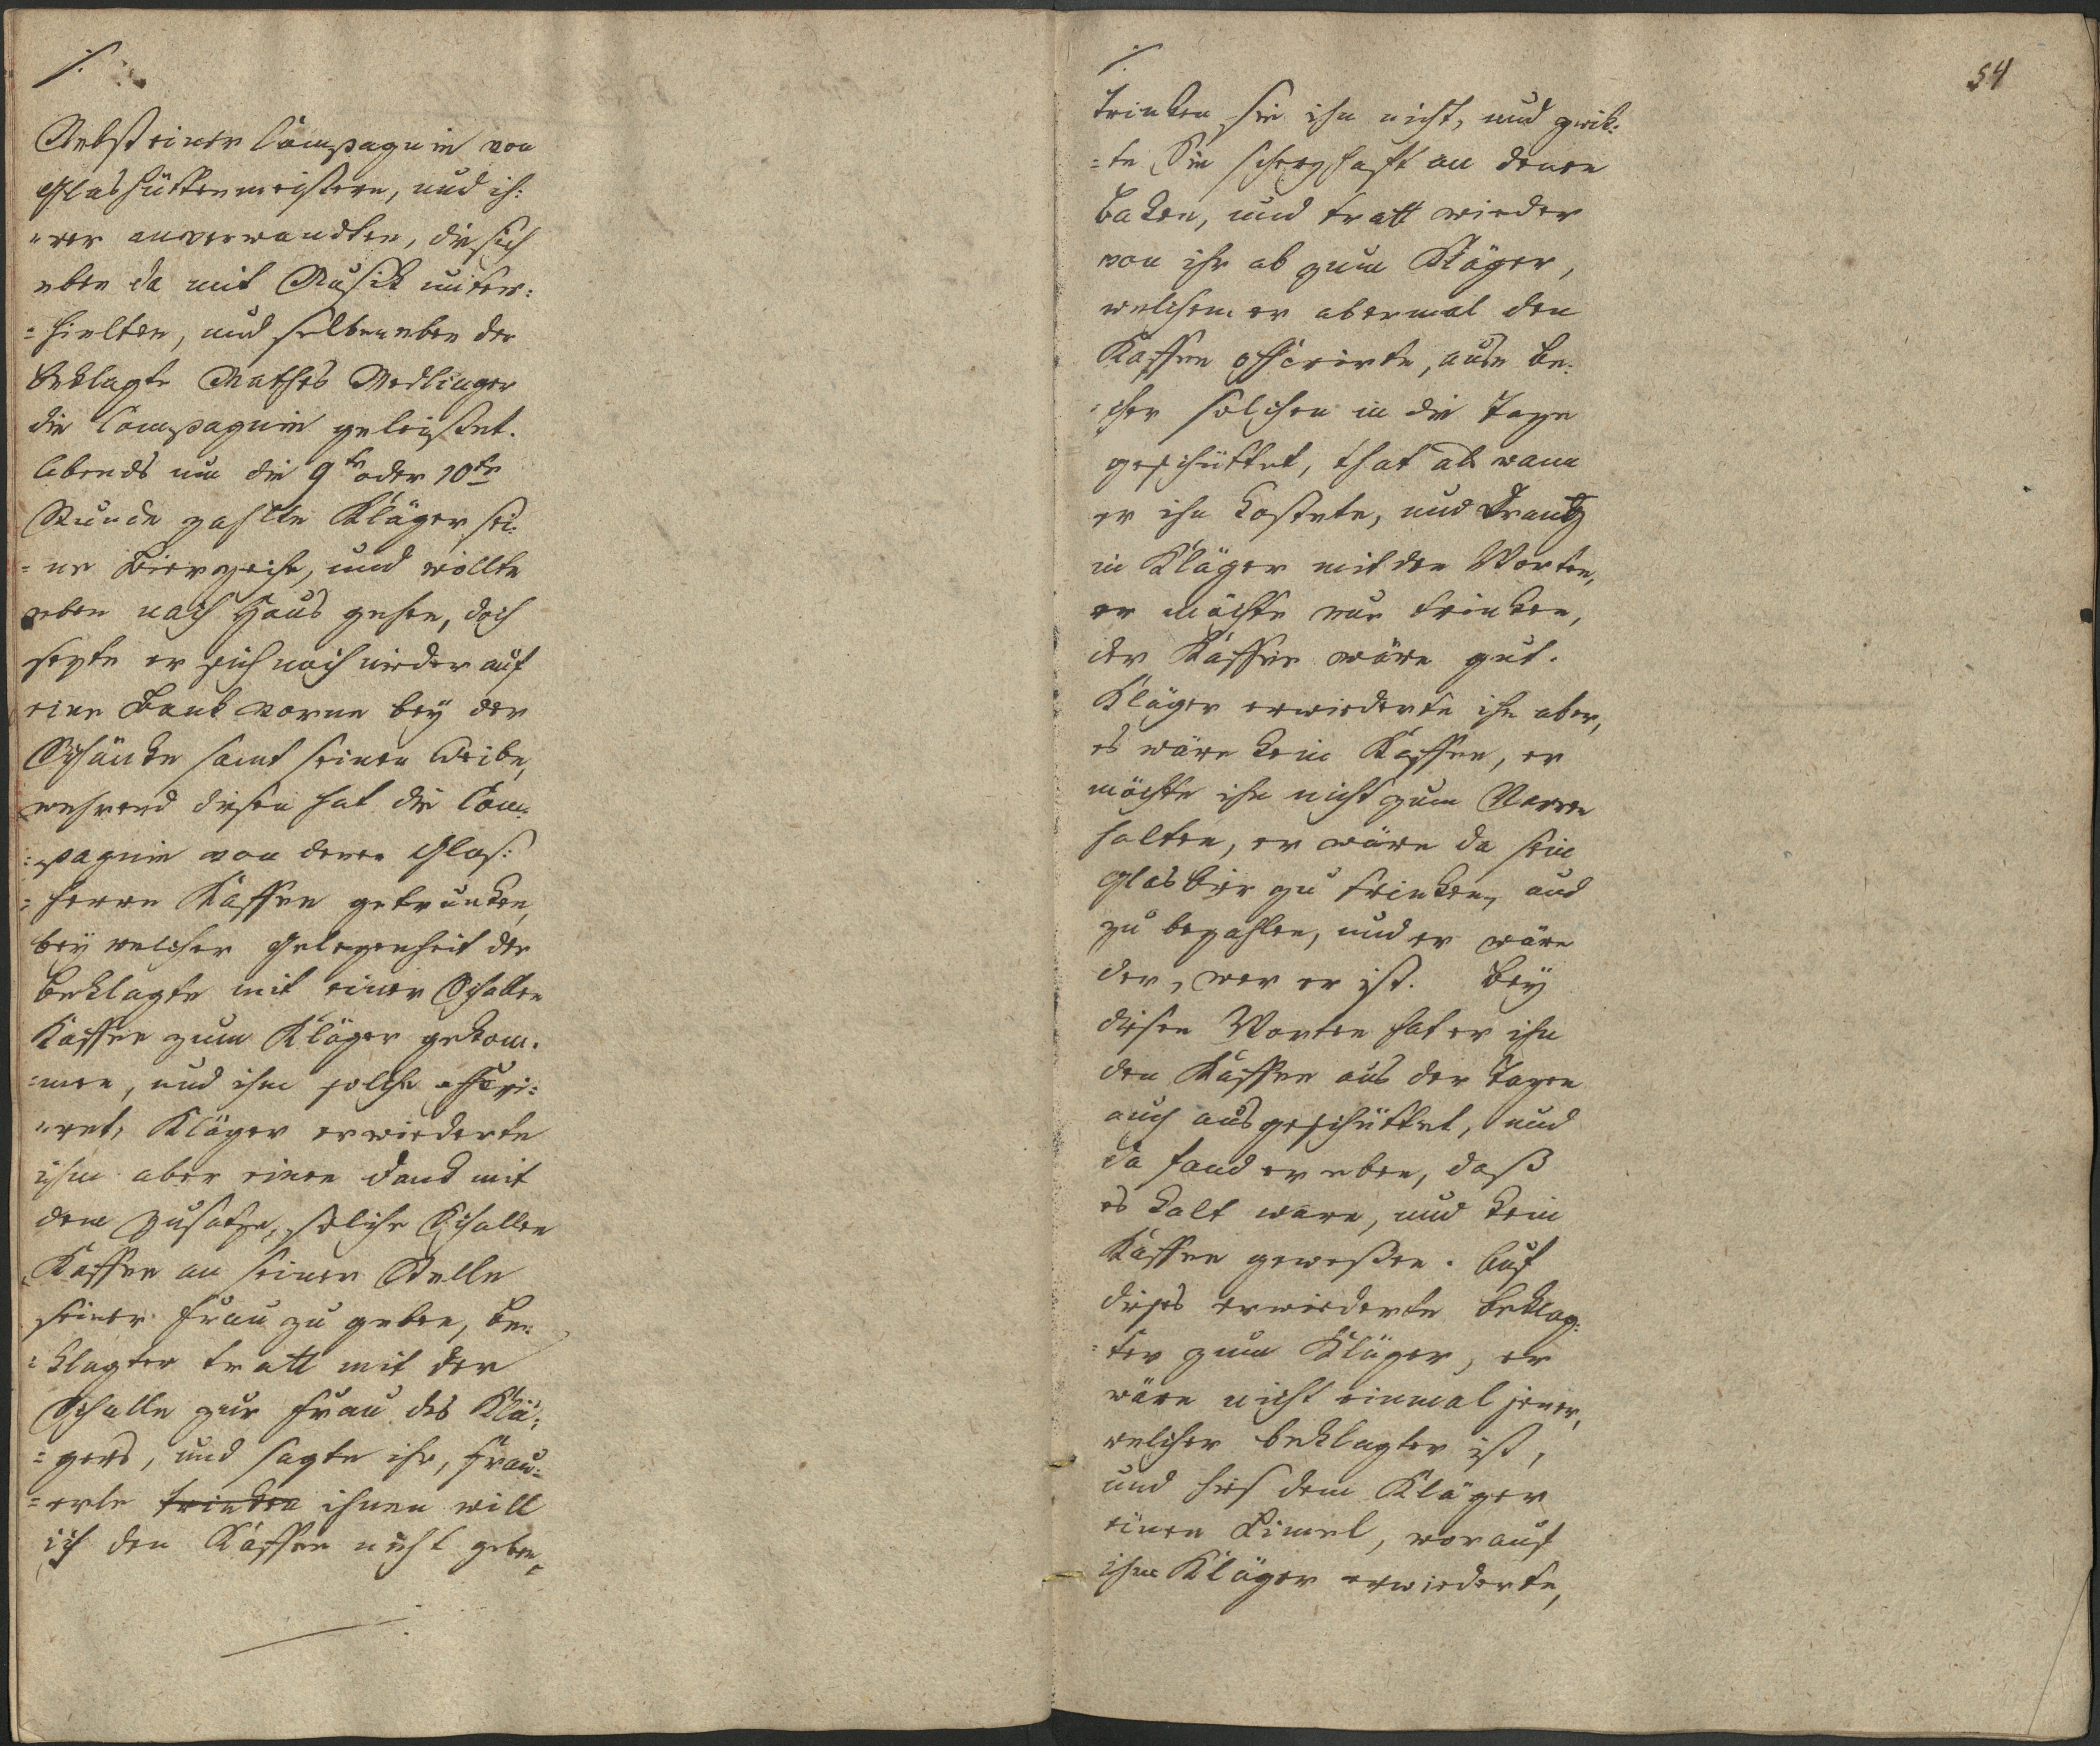 ./.
Nebst einer Compagnie von
Glashüttenmeistern, und ih:
:rer anverwandten, die sich
eben da mit Musik unter:
:hielten, und selben eben der
beklagte Mathes Medlinger
die Compagnie geleistet.
Abends um die 9te oder 10te
Stunde zahlte Kläger sei:
:ne Bierzeche, und wollte
eben nach Haus gehen, doch
sezte er sich noch nieder auf
eine Bank vorne bey der
Schänke samt seinen Weibe,
während diesen hat die Com:
:pagnie von denen Glas:
:herrn Kaffee getrunken,
bey welcher Gelegenheit der
beklagte mit einer Schallen
Kaffee zum Kläger gekom:
:men, und ihm solche offeri:
:ret, Kläger erwiederte
ihm aber einen Dank mit
dem Zusatze, solche Schallen
Kaffee an seiner Stelle
seiner Frau zu geben, be:
:klagter tratt mit der
Schalle zur Frau des Klä:
:gers, und sagte ihr, Frau:
:erle trinken ihnen will
ich den Kaffee nicht geben,
./.
54
trinken sie ihn nicht, und zwik:
:te Sie scherzhaft an denen
Baken, und tratt wieder
von ihr ab zum Kläger,
welchem er abermal den
Kaffee offerirte,
solchen in die Taze
geschüttet, that als wann
er ihn kostete, und
Kläger mit den Worten,
er möchte nur trinken,
der Kaffee wäre gut.
Kläger erwiederte ihn aber,
es wäre kein Kaffee, er
möchte ihn nicht zum Narren
halten, er wäre da sein
Glas bier zu trinken, und
zu bezahlen, und er wäre
der, wer er ist. Bey
diesen Worten hat er ihn
den Kaffee aus der Tazen
auch ausgeschüttet, und
da fand er eben, daß
es kalt ware, und kein
Kaffee gewesen. Auf
dieses erwiederte beklag:
:ter zum Kläger, er
wäre nicht einmal jener,
welcher beklagter ist,
und hies dem Kläger
einen Limel, worauf
ihm Kläger erwiederte,